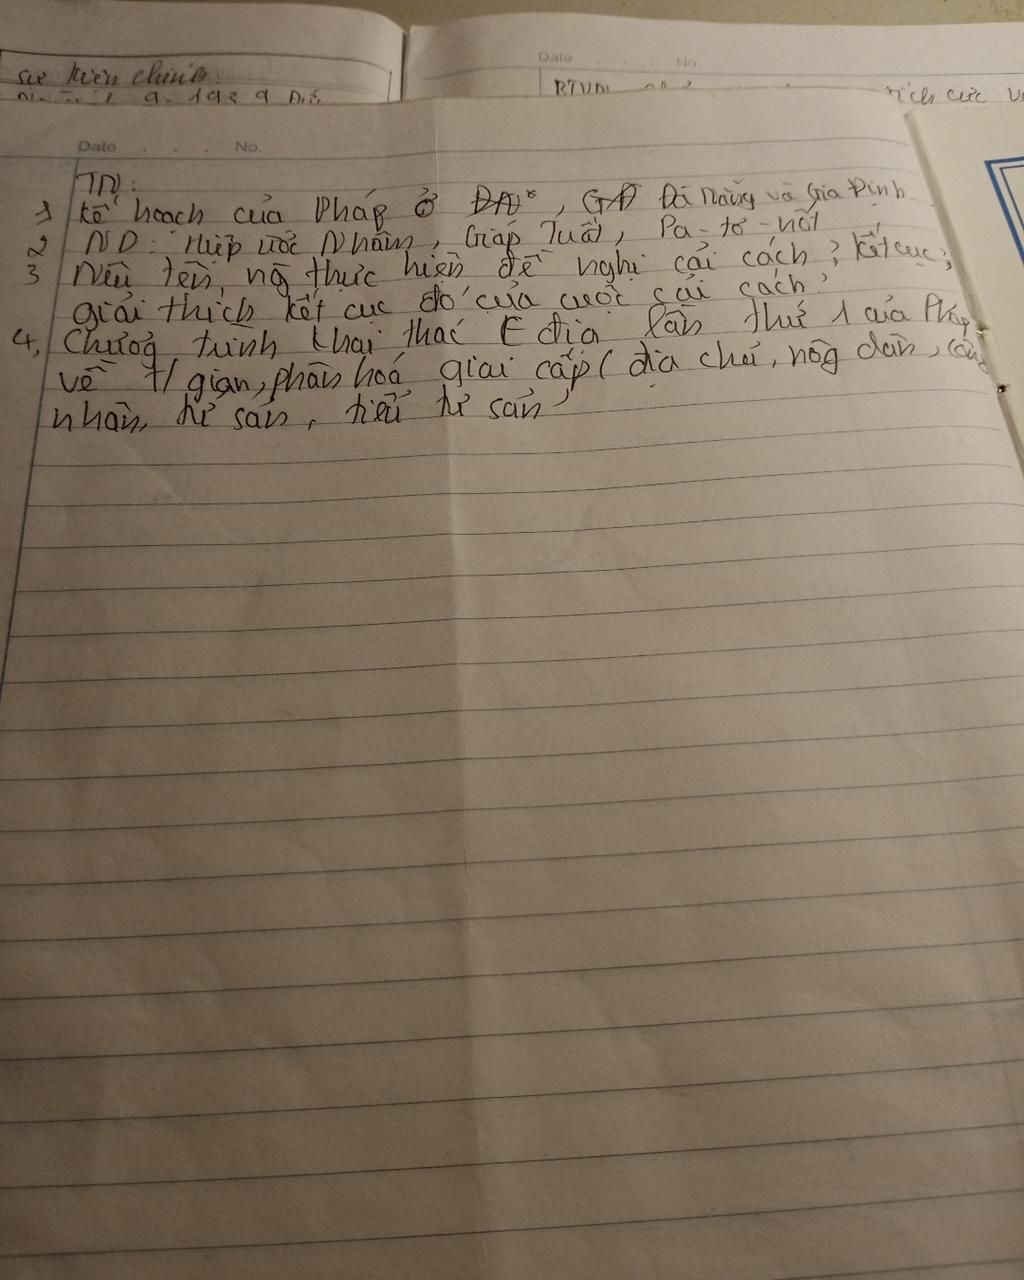 Sự kiện chính:
Date No.
BTVN
tích cực
Date . . . No.
TN:
1 Kế hoạch của Pháp ở ĐN, GĐ Đà Nẵng và Gia Định
2 ND: Hiệp ước Nhâm, Giáp Tuất, Pa-tơ-nốt
3 Nêu tên, ng thực hiện đề nghị cải cách; kết cục;
giải thích kết cục đó của cuộc cải cách?
4, Chương trình khai thác t địa lần thứ 1 của Pháp
về t/gian, phân hoá giai cấp (địa chủ, nông dân, công
nhân, tư sản, tiểu tư sản)